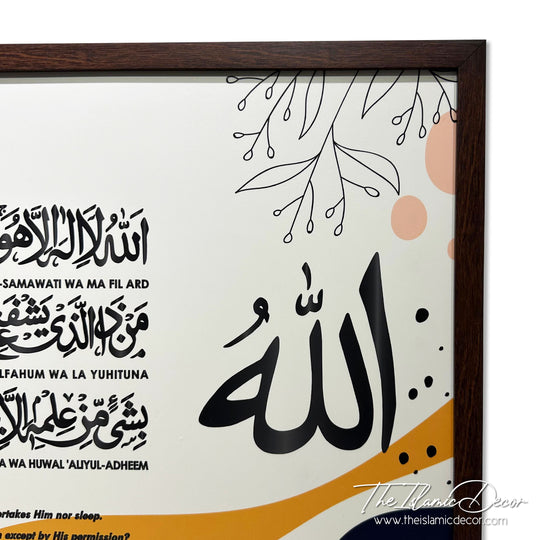 اَللّٰهُ لَا اِلٰهَ اِلَّا هُوَ
-SAMAWATI WA MA FIL ARD
مَنْ ذَا الَّذِي يَشْفَعُ
LFAHUM WA LA YUHITUNA
بِشَيْءٍ مِّنْ عِلْمِهٖ اِلَّا
A WA HUWAL 'ALIYUL-ADHEEM
ertakes Him nor sleep.
except by His permission?
اللّٰهُ
The Islamic Decor
www.theislamicdecor.com